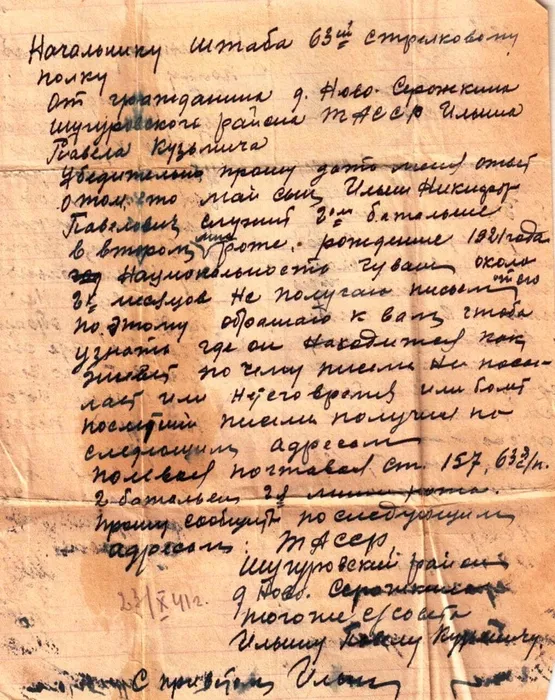 Начальнику штаба 63й стрелковому
полку
От гражданина д. Ново. Серожкина
Шугуровского района ТАССР Ильина
Павела Кузьмича
Убедительно прошу дать меня ответ
о том, что май сын, Ильин Никифор
Павелович служит 2ом батальне
в втором мин роте. рождение 1921 года
Национольность чуваш около
2х месяцов Не получаю письем от его
по этому обращаю к вам, чтоба
узнать где он Находится как
живет по чему писем Не посы-
лает или Нет его время или
последний писем получил по
следующим адресом
полевая почтавая ст. 157, 63 с/п.
2 батальен 2я мин рота.
прошу сообщить по следующим
адресом: ТАССР,
Шугуровский район
д Ново. Серожкина
того же с/совета
Ильину Павлу Кузмичу
23/X 41 г.
С приветом Ильин